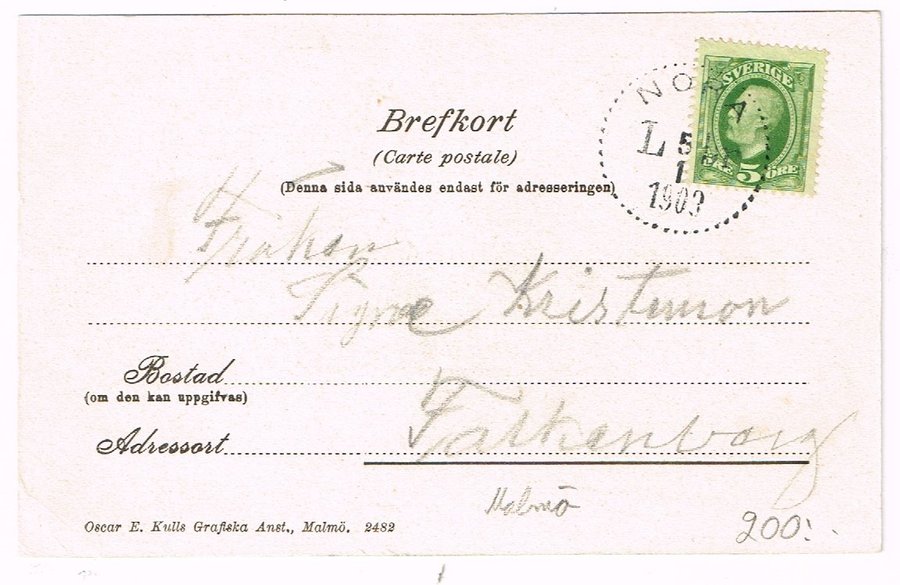 SVERIGE
5 ÖRE
NORA
L
5
1
1903
Brefkort
(Carte postale)
(Denna sida användes endast för adresseringen)
Fröken
Signe Kristenson
Bostad
(om den kan uppgifvas)
Adressort
Falkenberg
Malmö
Oscar E. Kulls Grafiska Anst., Malmö. 2482
200:-